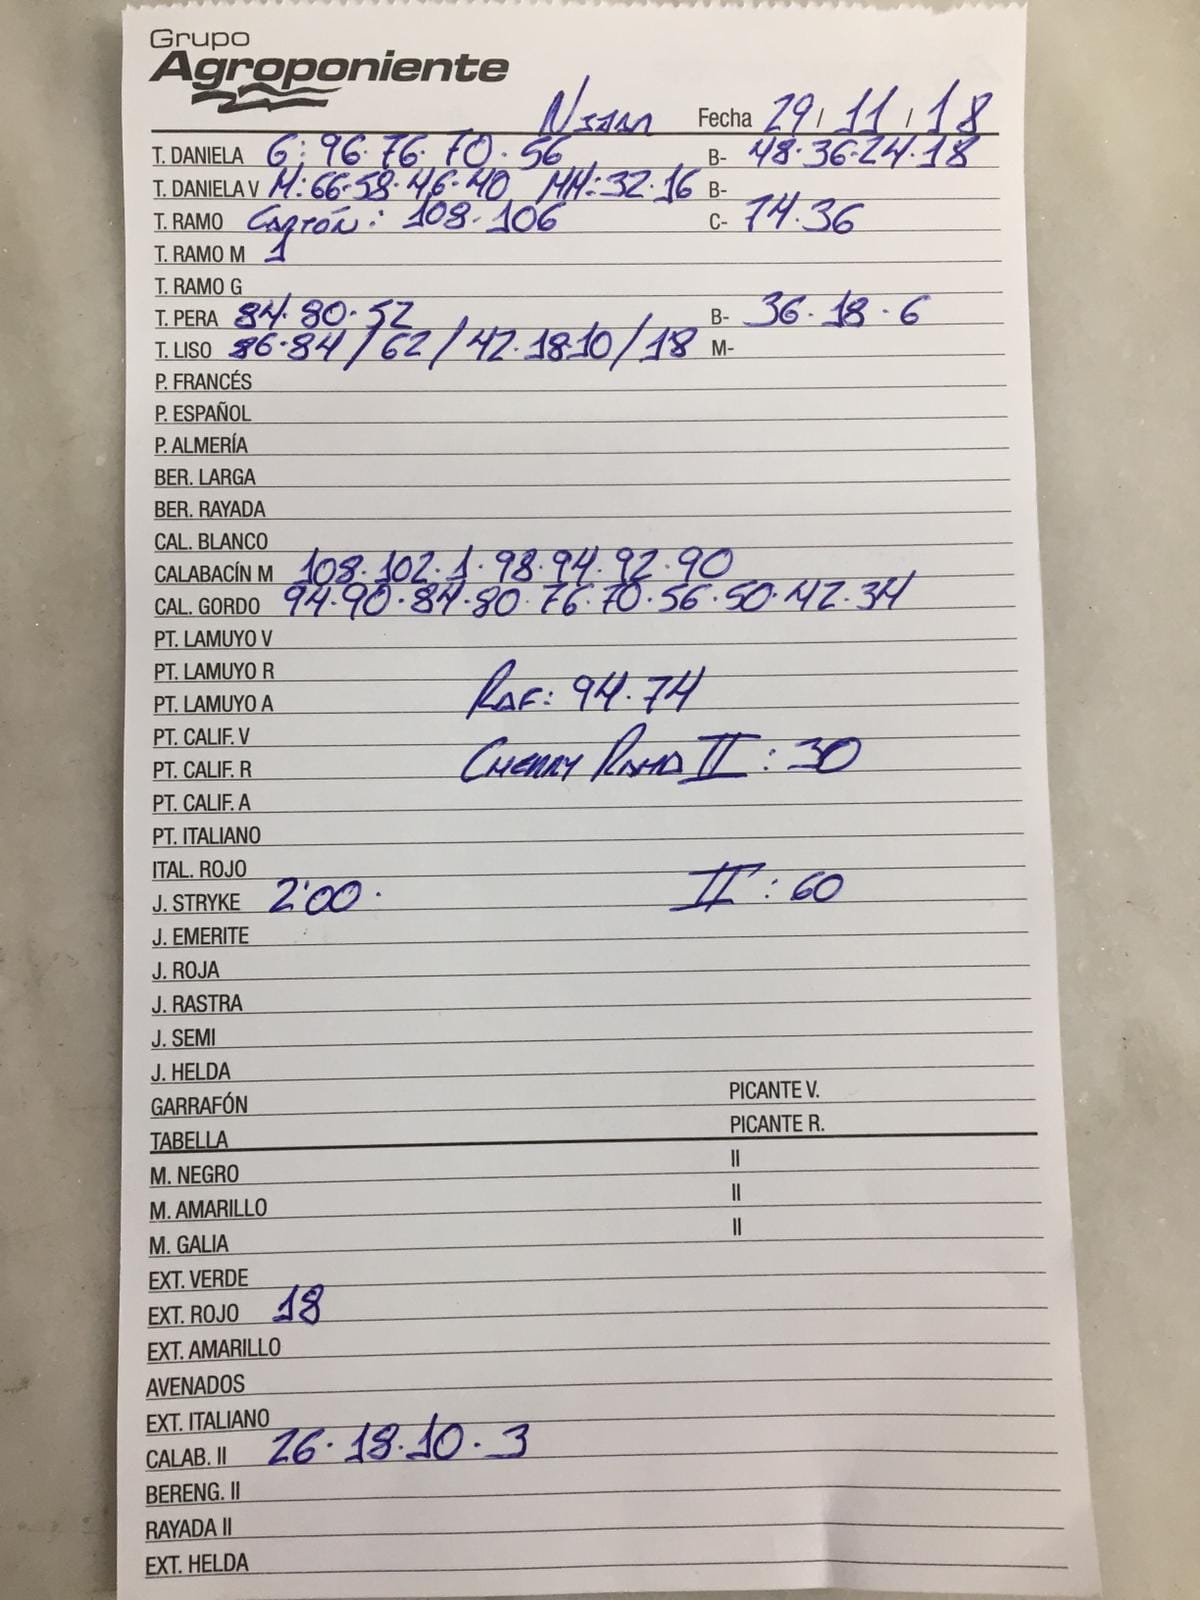 Grupo
Agroponiente
Nijar Fecha 29 / 11 / 18
T. DANIELA G: 96·76·70·56 B- 48·36·24·18
T. DANIELA V M: 66·58·46·40 MM: 32·16 B-
T. RAMO Cartón: 108·106 C- 74·36
T. RAMO M 1
T. RAMO G
T. PERA 84·80·52 B- 36·18·6
T. LISO 86·84 / 62 / 42·18·10 / 18 M-
P. FRANCÉS
P. ESPAÑOL
P. ALMERÍA
BER. LARGA
BER. RAYADA
CAL. BLANCO
CALABACÍN M 108·102·1·98·94·92·90
CAL. GORDO 94·90·84·80·76·70·56·50·42·34
PT. LAMUYO V
PT. LAMUYO R
PT. LAMUYO A RAF: 94·74
PT. CALIF. V
PT. CALIF. R CHERRY RAMA II: 30
PT. CALIF. A
PT. ITALIANO
ITAL. ROJO
J. STRYKE 2'00· II: 60
J. EMERITE
J. ROJA
J. RASTRA
J. SEMI
J. HELDA
GARRAFÓN PICANTE V.
TABELLA PICANTE R.
M. NEGRO II
M. AMARILLO II
M. GALIA II
EXT. VERDE
EXT. ROJO 18
EXT. AMARILLO
AVENADOS
EXT. ITALIANO
CALAB. II 26·18·10·3
BERENG. II
RAYADA II
EXT. HELDA